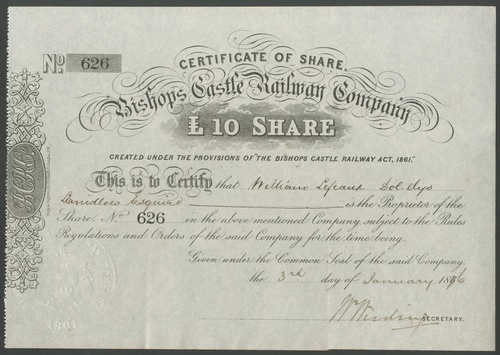 No. 626
CERTIFICATE OF SHARE.
Bishops Castle Railway Company
£10 SHARE
CREATED UNDER THE PROVISIONS OF "THE BISHOPS CASTLE RAILWAY ACT, 1861."
This is to Certify that William Lefeaux Dol-llys
Llanidloes Esquire is the Proprietor of the
Share. No. 626 in the above mentioned Company subject to the Rules
Regulations and Orders of the said Company for the time being.
Given under the Common Seal of the said Company
the 3rd day of January
SECRETARY.